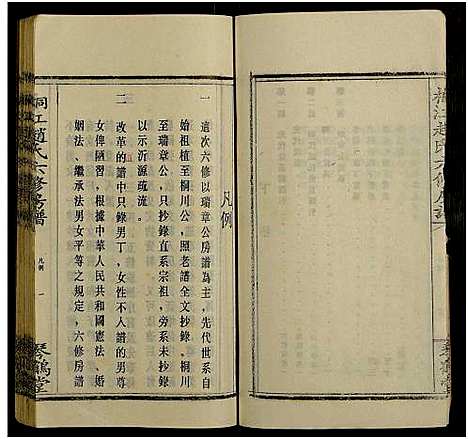 凡例
一 這次六修以瑞章公房譜為主，先代世系自
始祖植至桐川公，照老譜全文抄錄，桐川
至瑞章公，只抄錄直系宗祖，旁系未抄錄
以示沂源疏流。
二 改革的譜中只錄男丁，女性不入譜的男尊
女俾陋習，根據中華人民共和國憲法、婚
姻法、繼承法男女平等之規定，六修房譜
桐江趙氏六修房譜
凡例 一
琴鶴堂